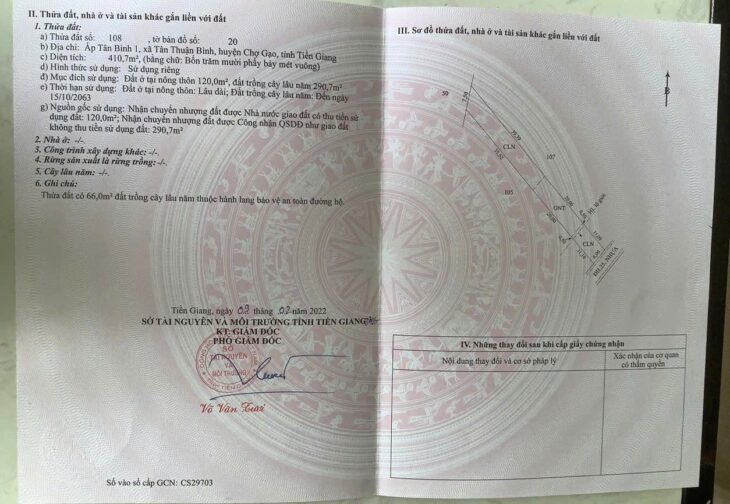 II. Thửa đất, nhà ở và tài sản khác gắn liền với đất
1. Thửa đất:
a) Thửa đất số: 108 , tờ bản đồ số: 20
b) Địa chỉ: Ấp Tân Bình 1, xã Tân Thuận Bình, huyện Chợ Gạo, tỉnh Tiền Giang
c) Diện tích: 410,7m², (bằng chữ: Bốn trăm mười phẩy bảy mét vuông)
d) Hình thức sử dụng: Sử dụng riêng
đ) Mục đích sử dụng: Đất ở tại nông thôn 120,0m², đất trồng cây lâu năm 290,7m²
e) Thời hạn sử dụng: Đất ở tại nông thôn: Lâu dài; Đất trồng cây lâu năm: Đến ngày
15/10/2063
g) Nguồn gốc sử dụng: Nhận chuyển nhượng đất được Nhà nước giao đất có thu tiền sử
dụng đất: 120,0m²; Nhận chuyển nhượng đất được Công nhận QSDĐ như giao đất
không thu tiền sử dụng đất: 290,7m²
2. Nhà ở: -/-
3. Công trình xây dựng khác: -/-
4. Rừng sản xuất là rừng trồng: -/-
5. Cây lâu năm: -/-
6. Ghi chú:
Thửa đất có 66,0m² đất trồng cây lâu năm thuộc hành lang bảo vệ an toàn đường bộ.
Tiền Giang, ngày 02 tháng 02 năm 2022
SỞ TÀI NGUYÊN VÀ MÔI TRƯỜNG TỈNH TIỀN GIANG
KT. GIÁM ĐỐC
PHÓ GIÁM ĐỐC
SỞ
TÀI NGUYÊN
VÀ
MÔI TRƯỜNG
Võ Văn
Số vào sổ cấp GCN: CS29703
III. Sơ đồ thửa đất, nhà ở và tài sản khác gắn liền với đất
B
50
CLN
107
105
ONT
20,00
CLN
ĐH.25, NHỰA
IV. Những thay đổi sau khi cấp giấy chứng nhận
Nội dung thay đổi và cơ sở pháp lý
Xác nhận của cơ quan
có thẩm quyền